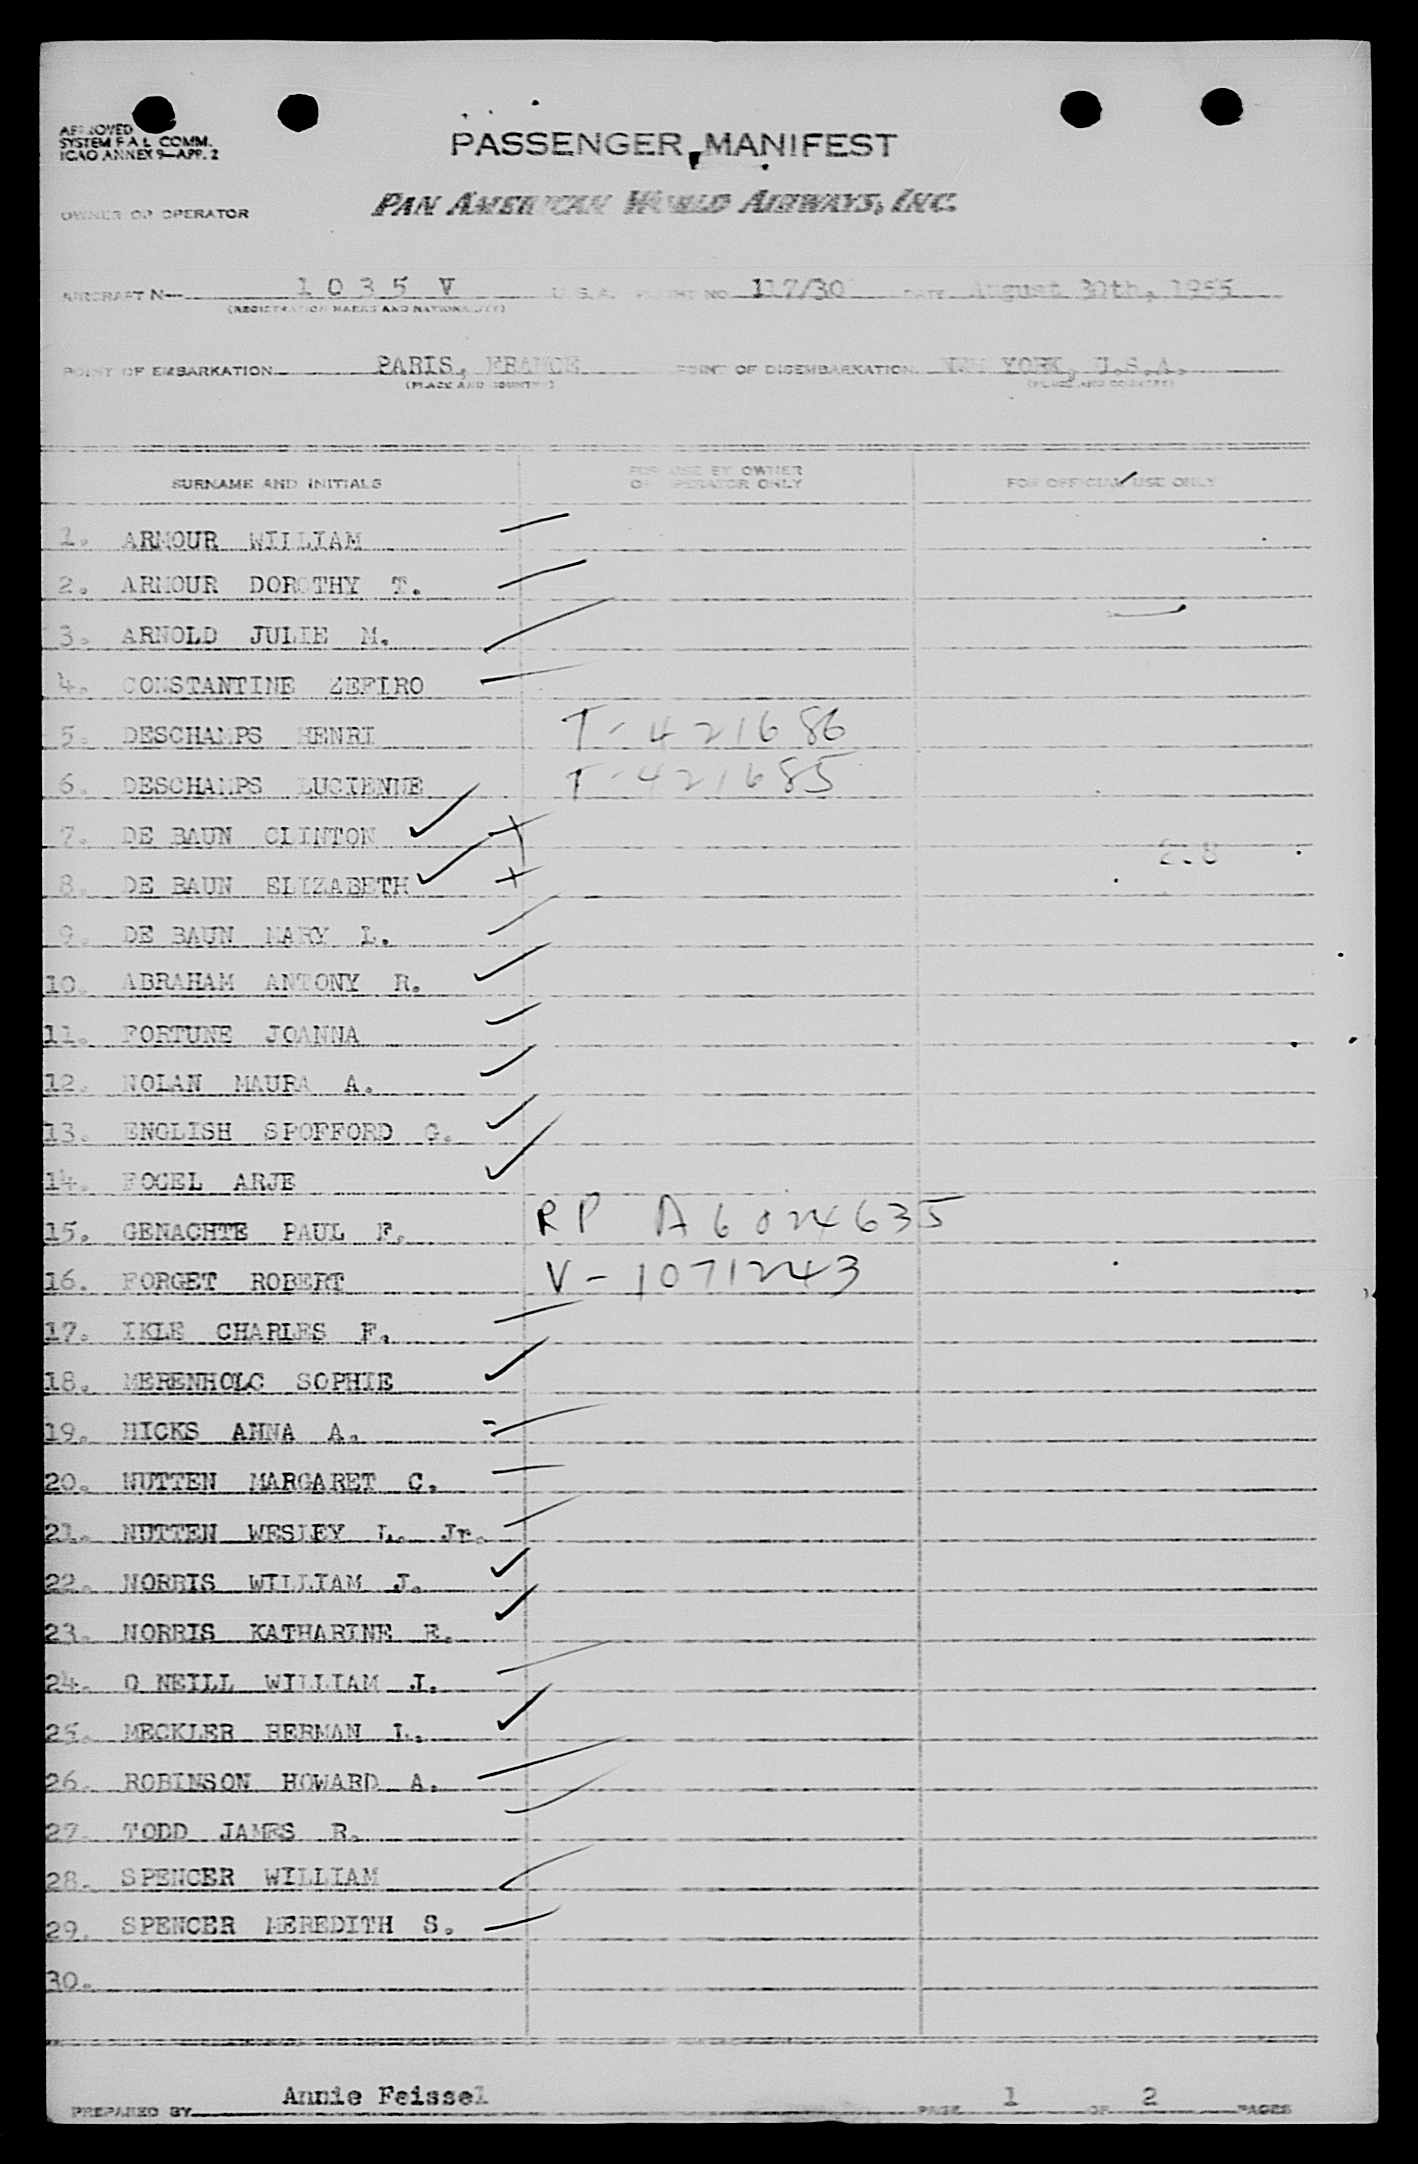 APPROVED
SYSTEM F A L COMM.
ICAO ANNEX 9-APP. 2
PASSENGER MANIFEST
OWNER OR OPERATOR PAN AMERICAN WORLD AIRWAYS, INC.
AIRCRAFT N- 1 0 3 5 V U. S. A. FLIGHT NO 117/30 DATE August 30th, 1955
(REGISTRATION MARKS AND NATIONALITY)
POINT OF EMBARKATION PARIS, FRANCE POINT OF DISEMBARKATION NEW YORK, U.S.A.
(PLACE AND COUNTRY) (PLACE AND COUNTRY)
SURNAME AND INITIALS FOR USE BY OWNER OR OPERATOR ONLY FOR OFFICIAL USE ONLY
1. ARMOUR WILLIAM
2. ARMOUR DOROTHY T.
3. ARNOLD JULIE M.
4. CONSTANTINE ZEFIRO
5. DESCHAMPS HENRI T-421686
6. DESCHAMPS LUCIENNE T-421685
7. DE BAUN CLINTON
8. DE BAUN ELIZABETH
9. DE BAUN MARY L.
10. ABRAHAM ANTONY R.
11. FORTUNE JOANNA
12. NOLAN MAURA A.
13. ENGLISH SPOFFORD G.
14. FOGEL ARJE
15. GENACHTE PAUL F. RP A6024635
16. FORGET ROBERT V-1071243
17. IKLE CHARLES F.
18. MERENHOLC SOPHIE
19. HICKS ANNA A.
20. NUTTEN MARGARET C.
21. NUTTEN WESLEY L. Jr.
22. NORRIS WILLIAM J.
23. NORRIS KATHARINE E.
24. O NEILL WILLIAM J.
25. MECKLER HERMAN L.
26. ROBINSON HOWARD A.
27. TODD JAMES R.
28. SPENCER WILLIAM
29. SPENCER MEREDITH S.
30.
PREPARED BY Annie Feissel PAGE 1 OF 2 PAGES